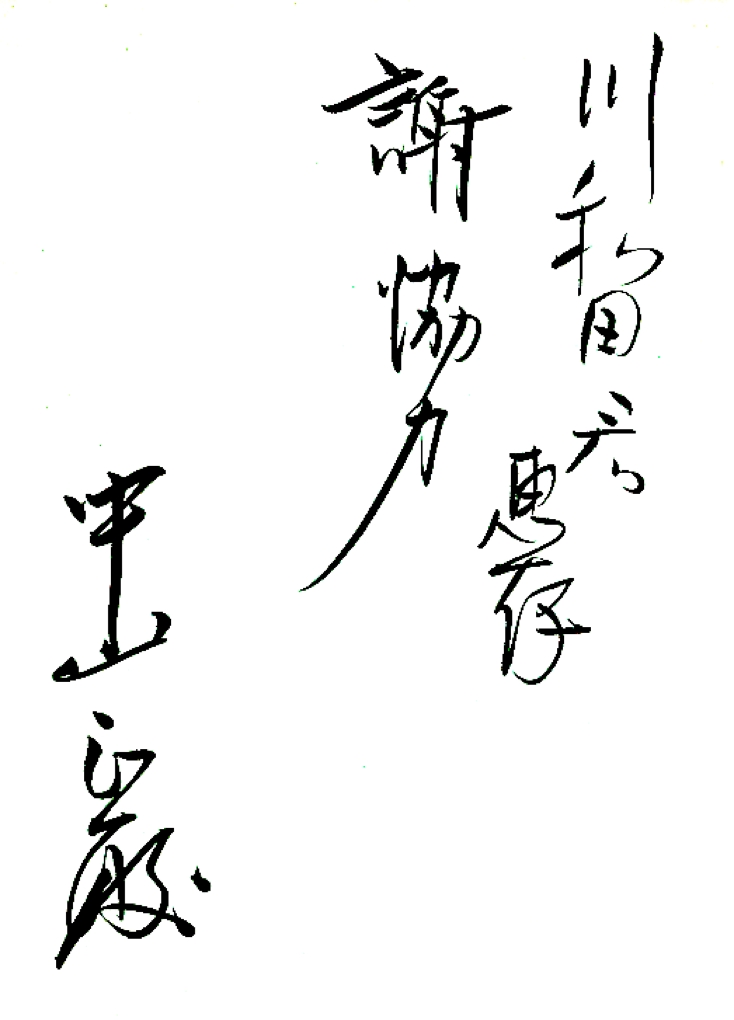 川和田君
惠存
謝協力
中山正暉